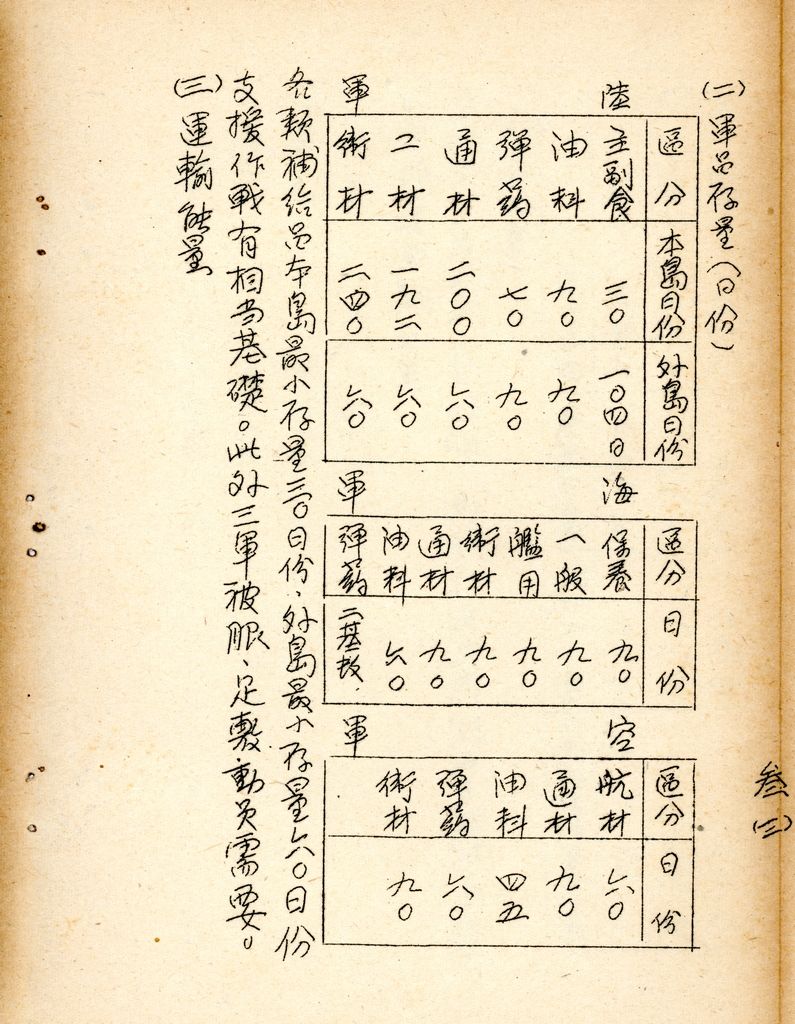 叁(三)
(二)軍品存量(日份)
陸軍
區分 本島日份 外島日份
主副食 三〇 一〇四日
油料 九〇 九〇
彈葯 七〇 九〇
通材 二〇〇 六〇
工材 一九二 六〇
衛材 二四〇 六〇
海軍
區分 日份
保養 九〇
一般 九〇
艦用 九〇
衛材 九〇
通材 九〇
油料 六〇
彈葯 二基放
空軍
區分 日份
航材 六〇
通材 九〇
油料 四五
彈葯 六〇
衛材 九〇
各類補給品本島最小存量三〇日份、外島最小存量六〇日份
支援作戰有相当基礎。此外三軍被服、足敷動員需要。
(三)運輸能量